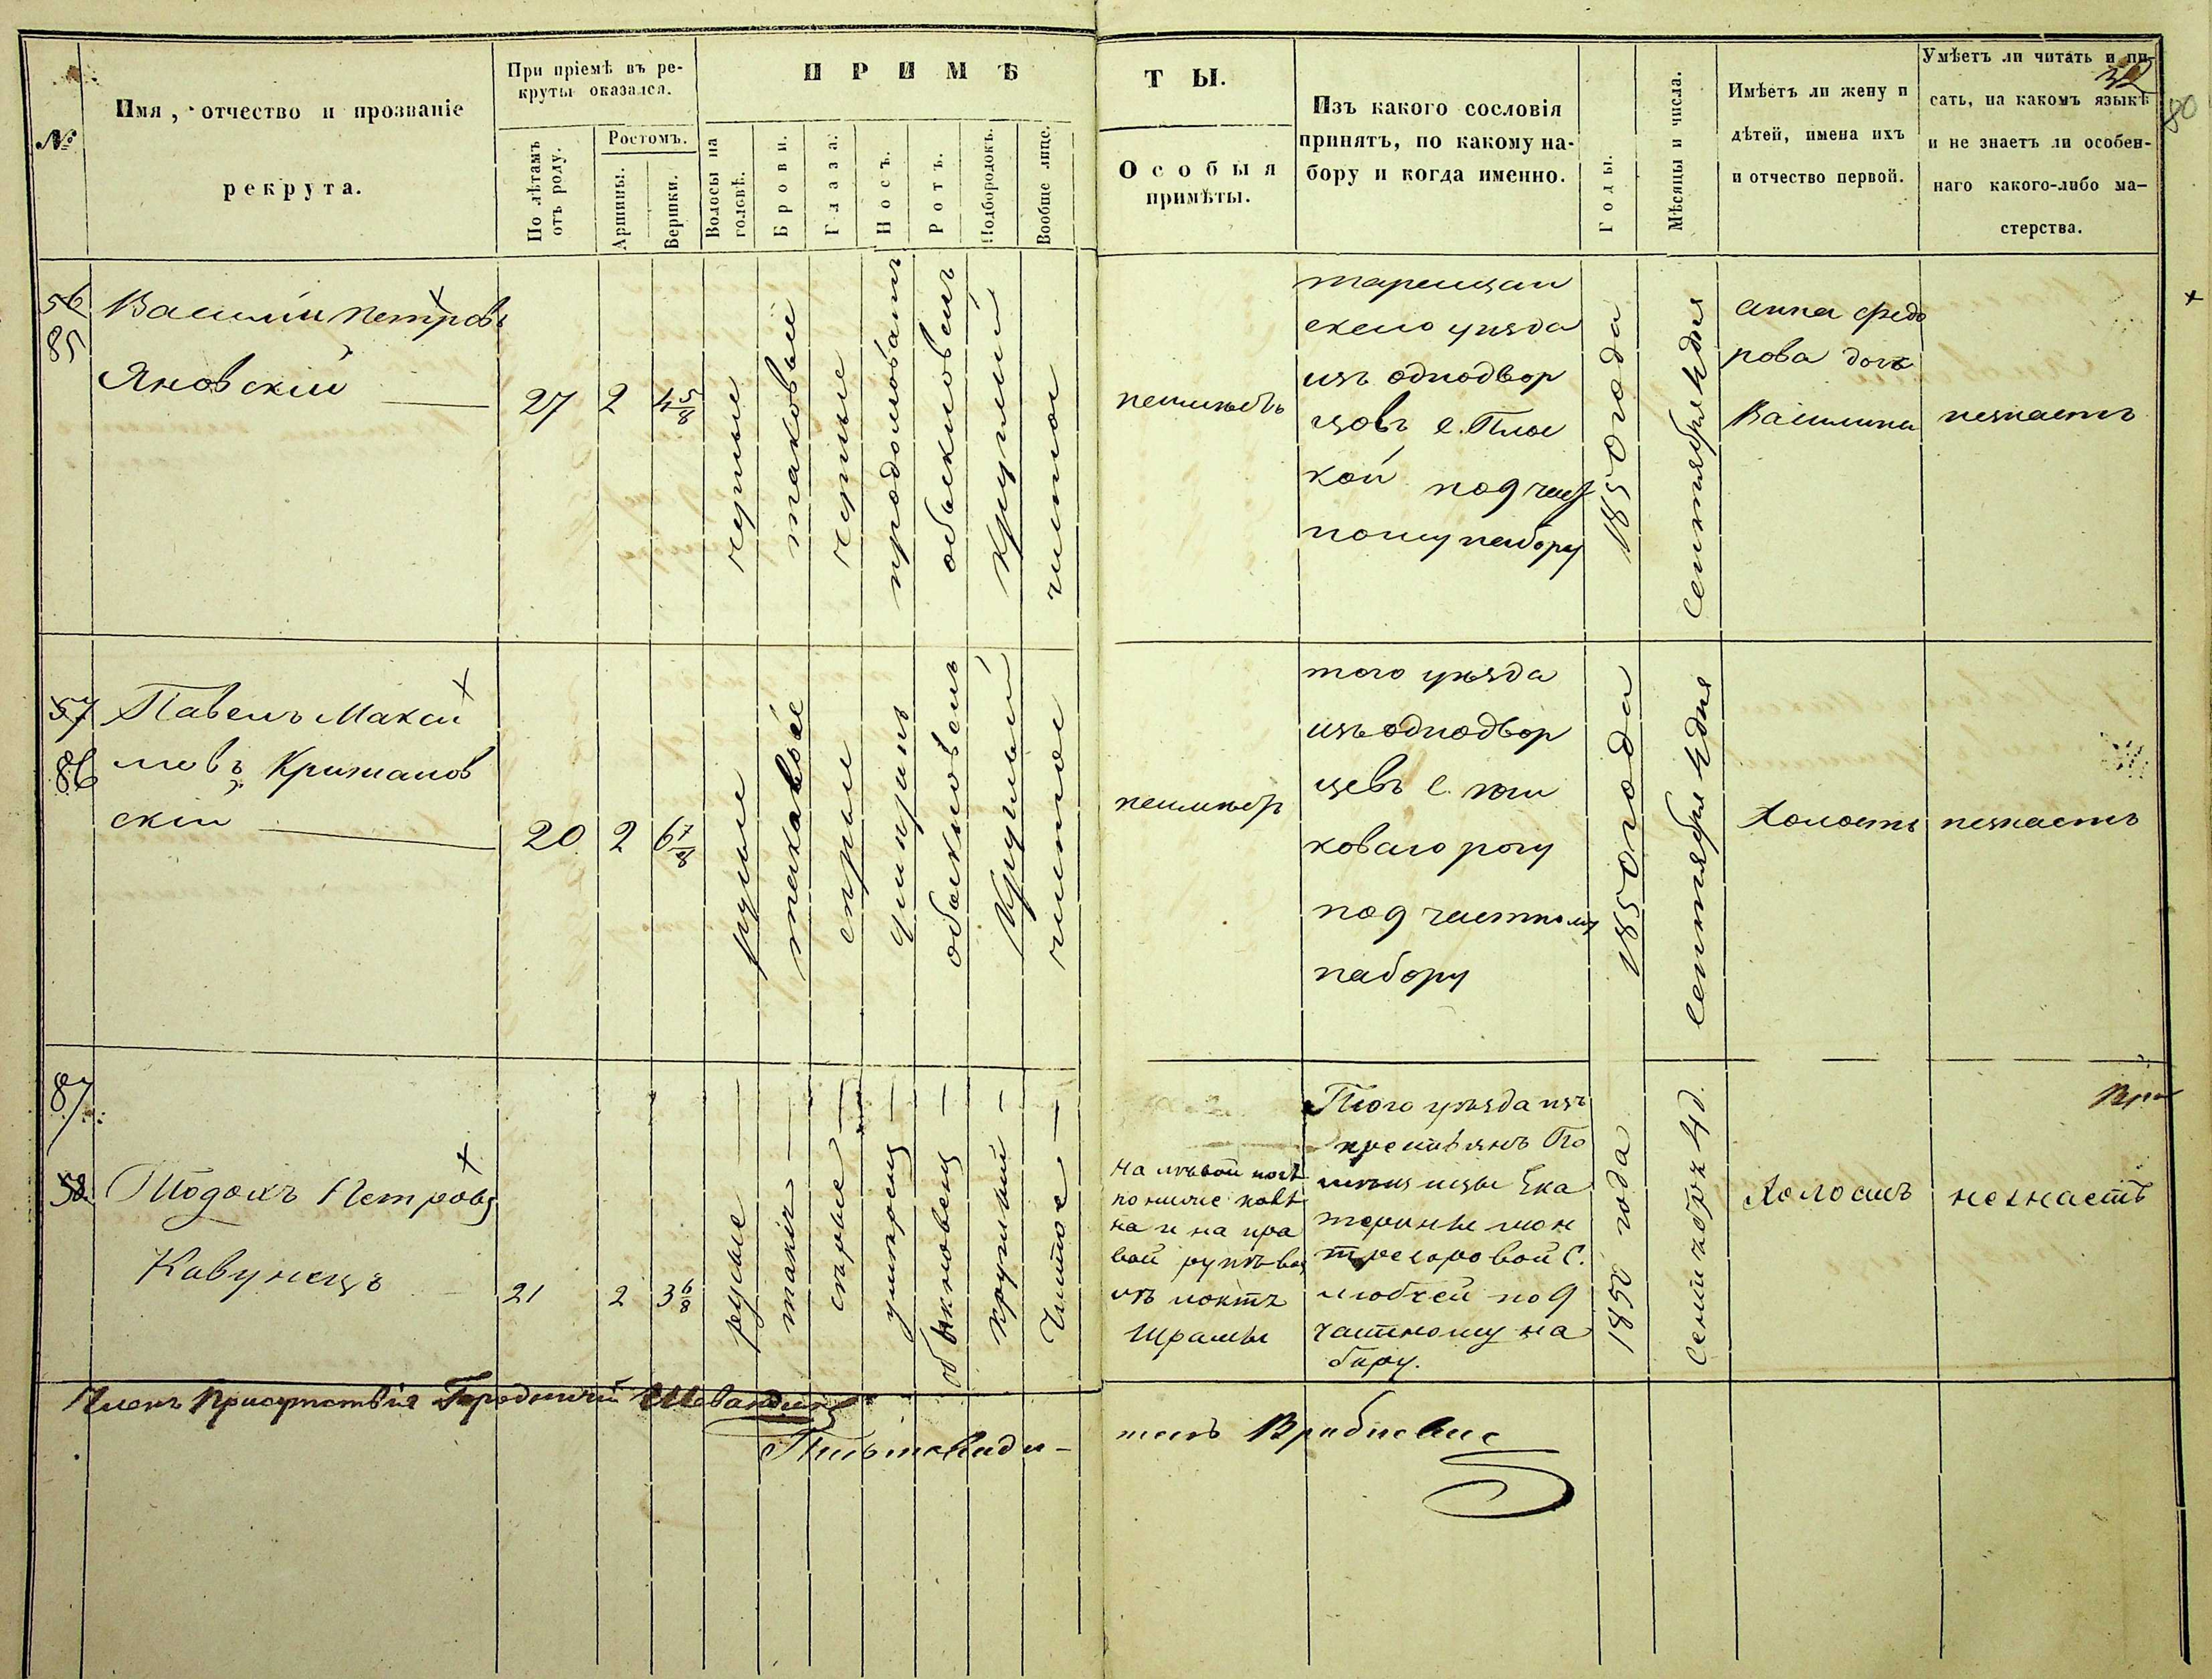 №
Имя, отчество и прозваніе
рекрута.
При пріемѣ въ ре-
круты оказался.
По лѣтамъ
отъ роду.
Ростомъ.
Аршины.
Вершки.
ПРИМѢ
Волосы на
головѣ.
Брови.
Глаза.
Носъ.
Ротъ.
Подбородокъ.
Вообще лице.
ТЫ.
Особыя
примѣты.
Изъ какого сословія
принятъ, по какому на-
бору и когда именно.
Годы.
Мѣсяцы и числа.
Имѣетъ ли жену и
дѣтей, имена ихъ
и отчество первой.
Умѣетъ ли читать и пи-
сать, на какомъ языкѣ
и не знаетъ ли особен-
наго какого-либо ма-
стерства.
32
80
56
85
Василій Петровъ
Яновскій
27
2
4 5/8
черные
таковые
черные
продолговатъ
обыкновенъ
круглый
чистое
неимѣетъ
таращан
скаго уѣзда
изъ однодвор
цовъ с. Плос
кой по 9 част
ному набору
1850 года
Сентября 4 дня
Анна Федо
рова дочь
Василина
незнаетъ
57
86
Павелъ Макси
мовъ Крижанов
скій
20
2
6 7/8
русые
таковые
сѣрые
умѣренъ
обыкновенъ
Круглый
чистое
неимѣетъ
того уѣзда
изъ однодвор
цевъ с.
коваго рогу
по 9 частному
набору
1850 года
Сентября 4 дня
Холостъ
незнаетъ
87
58
Тодосъ Петровъ
Кавунецъ
21
2
3 6/8
русые
такія
сѣрые
умѣренъ
обыкновенъ
круглый
Чистое
на лѣвой ногѣ
пониже колѣ
на и на пра
вой рукѣ
локтя
Шрамы
Того уѣзда изъ
крестьянъ По
мѣщицы Ека
терины мон
трезоровой С.
по 9
частному на
бору.
1850 года
Сентября 4 д.
Холостъ
незнаетъ
Членъ Присутствія Городничій